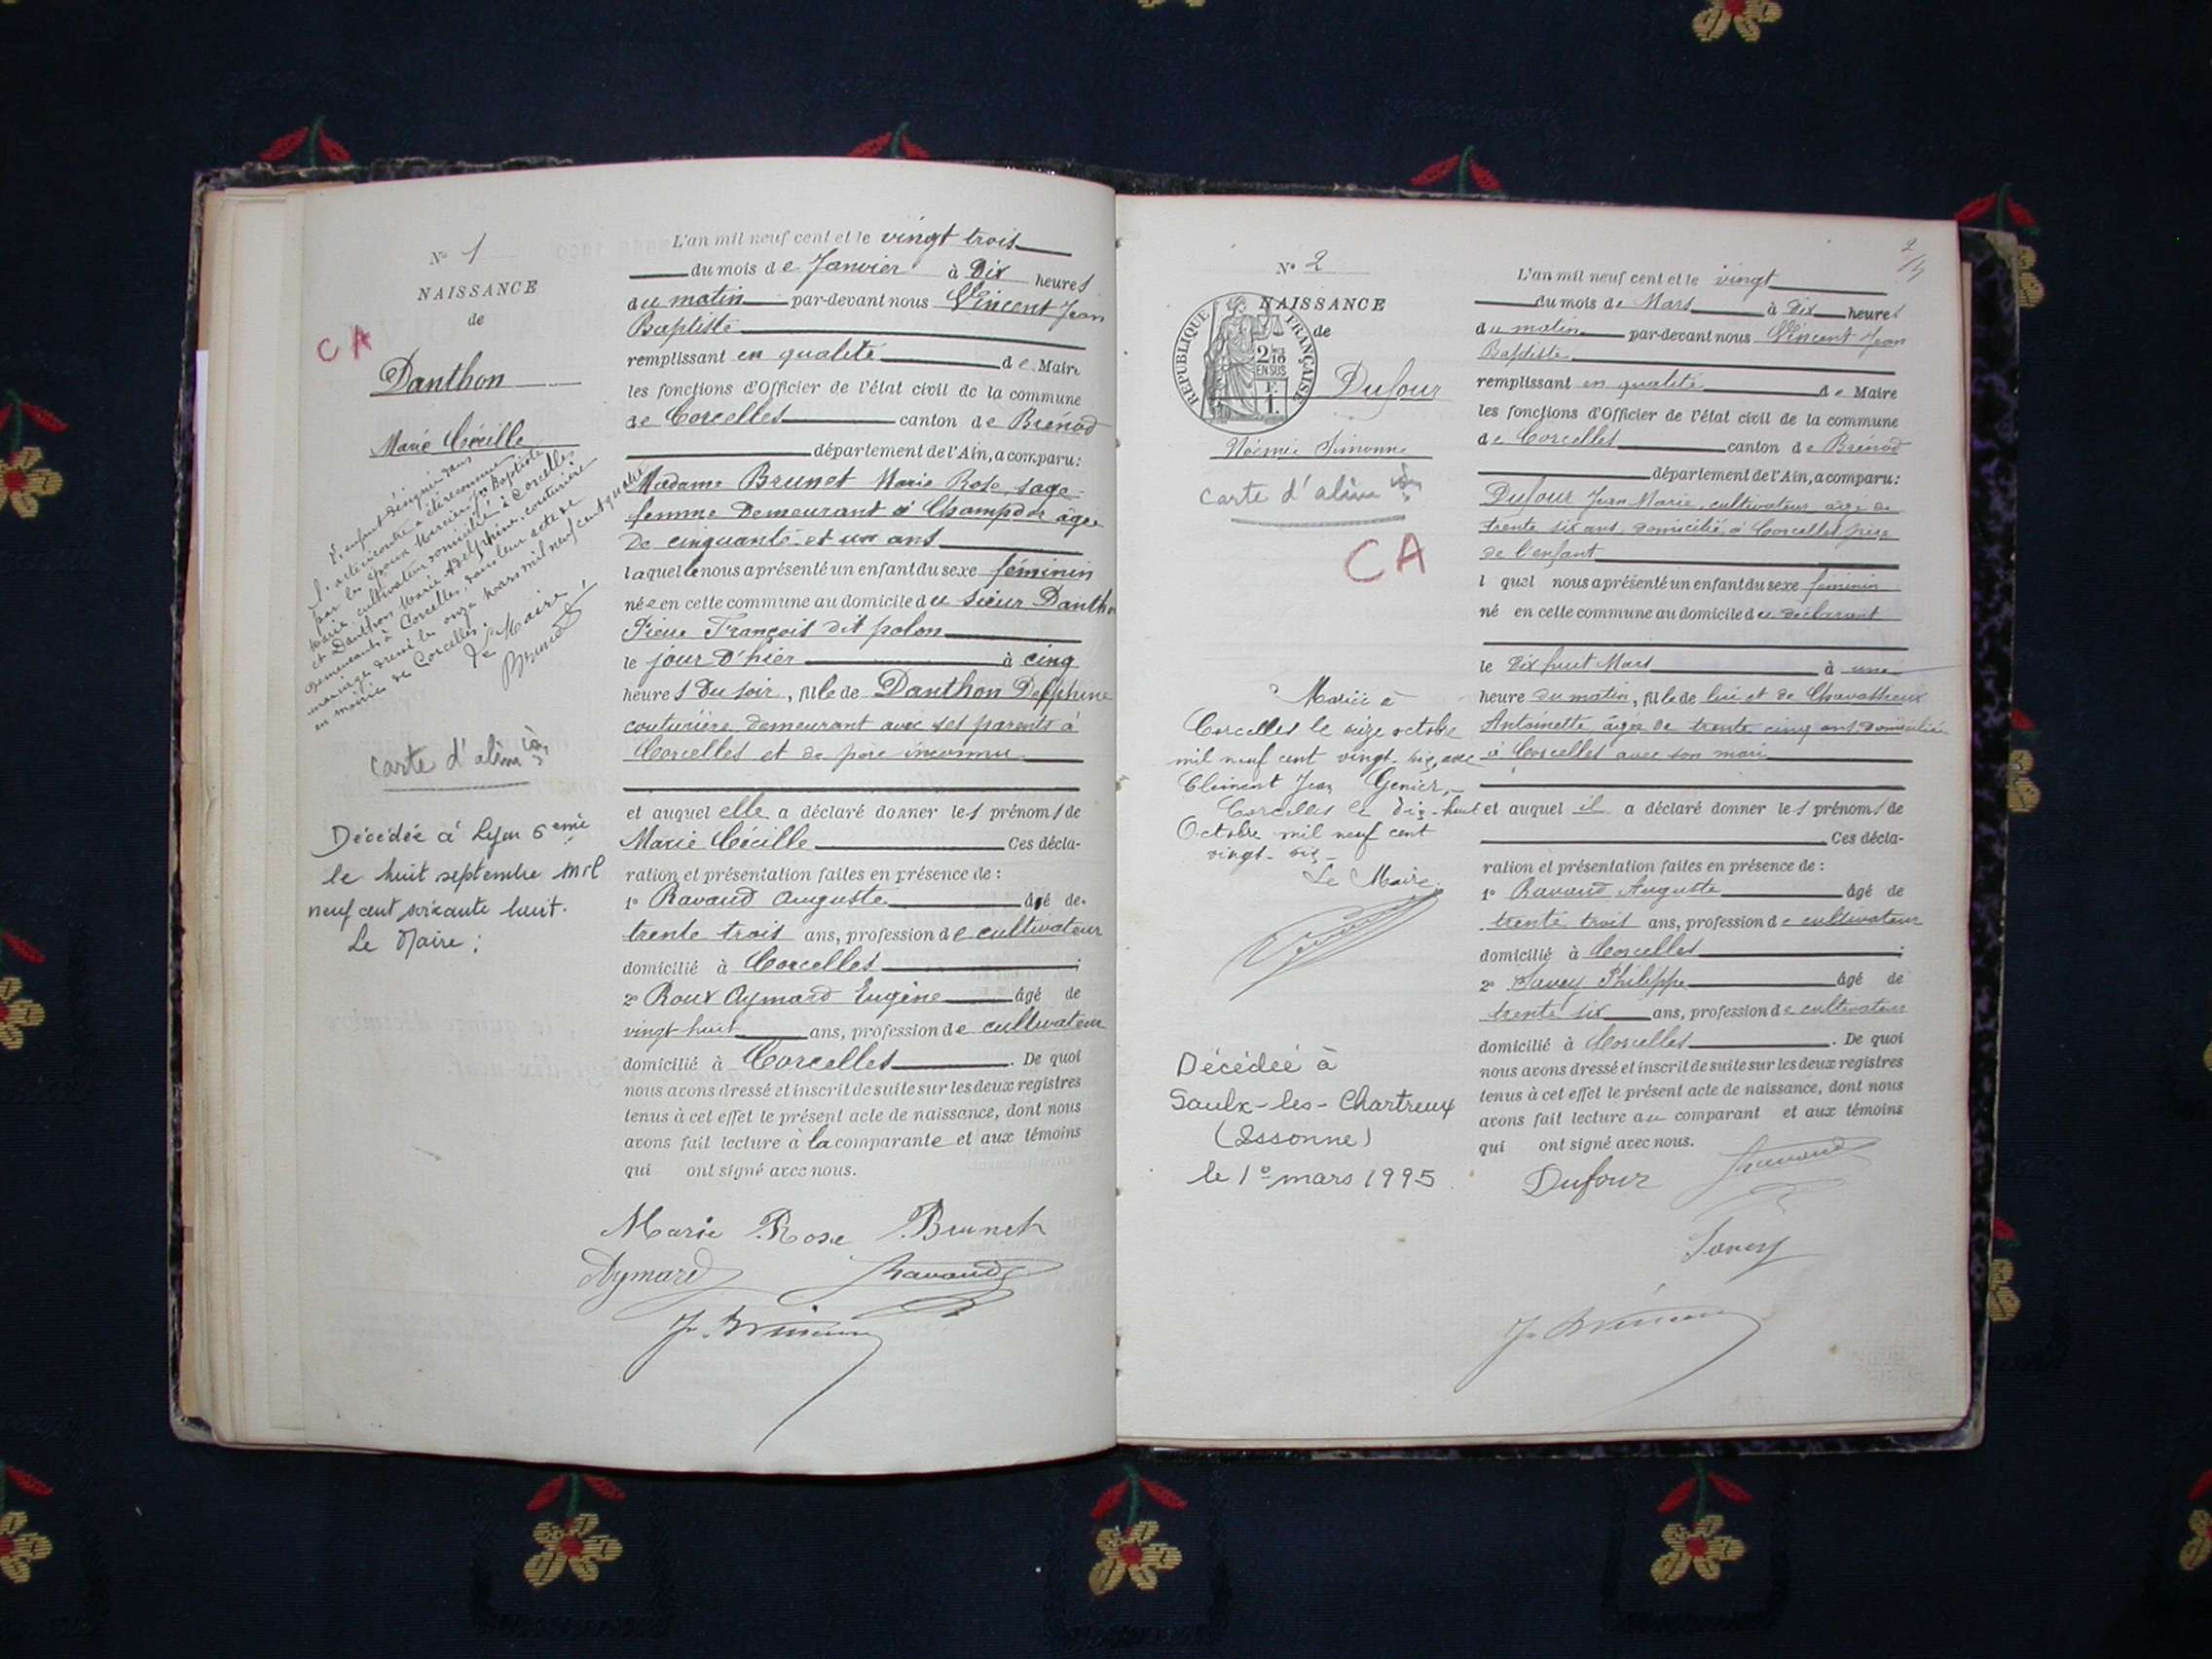 N° 1
NAISSANCE
de
CA
Danthon
Marie Cécille
L'enfant désignée dans
l'acte ci contre a été reconnue
par les époux Mercier Jn Baptiste
Marie, cultivateur domicilié à Corcelles
et Danthon Marie Adelphine, couturière
demeurant à Corcelles, dans leur acte de
mariage dressé le onze mars mil neuf cent quatre
en mairie de Corcelles.
Le Maire
Brunet
carte d'alim ion
Décédée à Lyon 6 eme
le huit septembre mil
neuf cent soixante huit.
Le Maire :
L'an mil neuf cent et le vingt trois
du mois de Janvier à Dix heures
du matin par-devant nous Vincent Jean
Baptiste
remplissant en qualité de Maire
les fonctions d'Officier de l'état civil de la commune
de Corcelles canton de Brénod
département de l'Ain, a comparu :
Madame Brunet Marie Rose, sage-
femme Demeurant à Champdor âgée
De cinquante et un ans
laquelle nous a présenté un enfant du sexe féminin
née en cette commune au domicile du sieur Danthon
Pierre François dit polon
le jour D'hier à cinq
heures Du soir, fille de Danthon Delphine
couturière demeurant avec ses parents à
Corcelles et de père inconnu
et auquel elle a déclaré donner les prénoms de
Marie Cécille Ces décla-
ration et présentation faites en présence de :
1° Ravaud Auguste âgé de
trente trois ans, profession de cultivateur
domicilié à Corcelles ;
2° Roux Aymard Eugène âgé de
vingt huit ans, profession de cultivateur
domicilié à Corcelles. De quoi
nous avons dressé et inscrit de suite sur les deux registres
tenus à cet effet le présent acte de naissance, dont nous
avons fait lecture à la comparante et aux témoins
qui ont signé avec nous.
Marie Rose Brunet
Aymard Ravaud
J. Vincent
2
N° 2
NAISSANCE
de
RÉPUBLIQUE FRANÇAISE
2/10
EN SUS
F.
1.
Dufour
Noémie Simonne
carte d'alim ion
CA
Mariée à
Corcelles le seize octobre
mil neuf cent vingt-six, avec
Clément Jean Genier,
Corcelles le dix-huit
Octobre mil neuf cent
vingt-six
Le Maire.
Décédée à
Saulx-les-Chartreux
(Essonne)
le 1° mars 1995
L'an mil neuf cent et le vingt
du mois de Mars à Dix heures
du matin par-devant nous Vincent Jean
Baptiste
remplissant en qualité de Maire
les fonctions d'Officier de l'état civil de la commune
de Corcelles canton de Brénod
département de l'Ain, a comparu :
Dufour Jean Marie, cultivateur âgé de
trente six ans, domicilié à Corcelles père
de l'enfant
l quel nous a présenté un enfant du sexe féminin
né en cette commune au domicile du déclarant
le Dix huit Mars à une
heure du matin, fille de lui et de
Antoinette âgée de trente cinq ans, domiciliée
à Corcelles avec son mari
et auquel il a déclaré donner les prénoms de
Ces décla-
ration et présentation faites en présence de :
1° Ravaud Auguste âgé de
trente trois ans, profession de cultivateur
domicilié à Corcelles ;
2° Savey Philippe âgé de
trente six ans, profession de cultivateur
domicilié à Corcelles. De quoi
nous avons dressé et inscrit de suite sur les deux registres
tenus à cet effet le présent acte de naissance, dont nous
avons fait lecture au comparant et aux témoins
qui ont signé avec nous.
Dufour Ravaud
Savey
J. Vincent